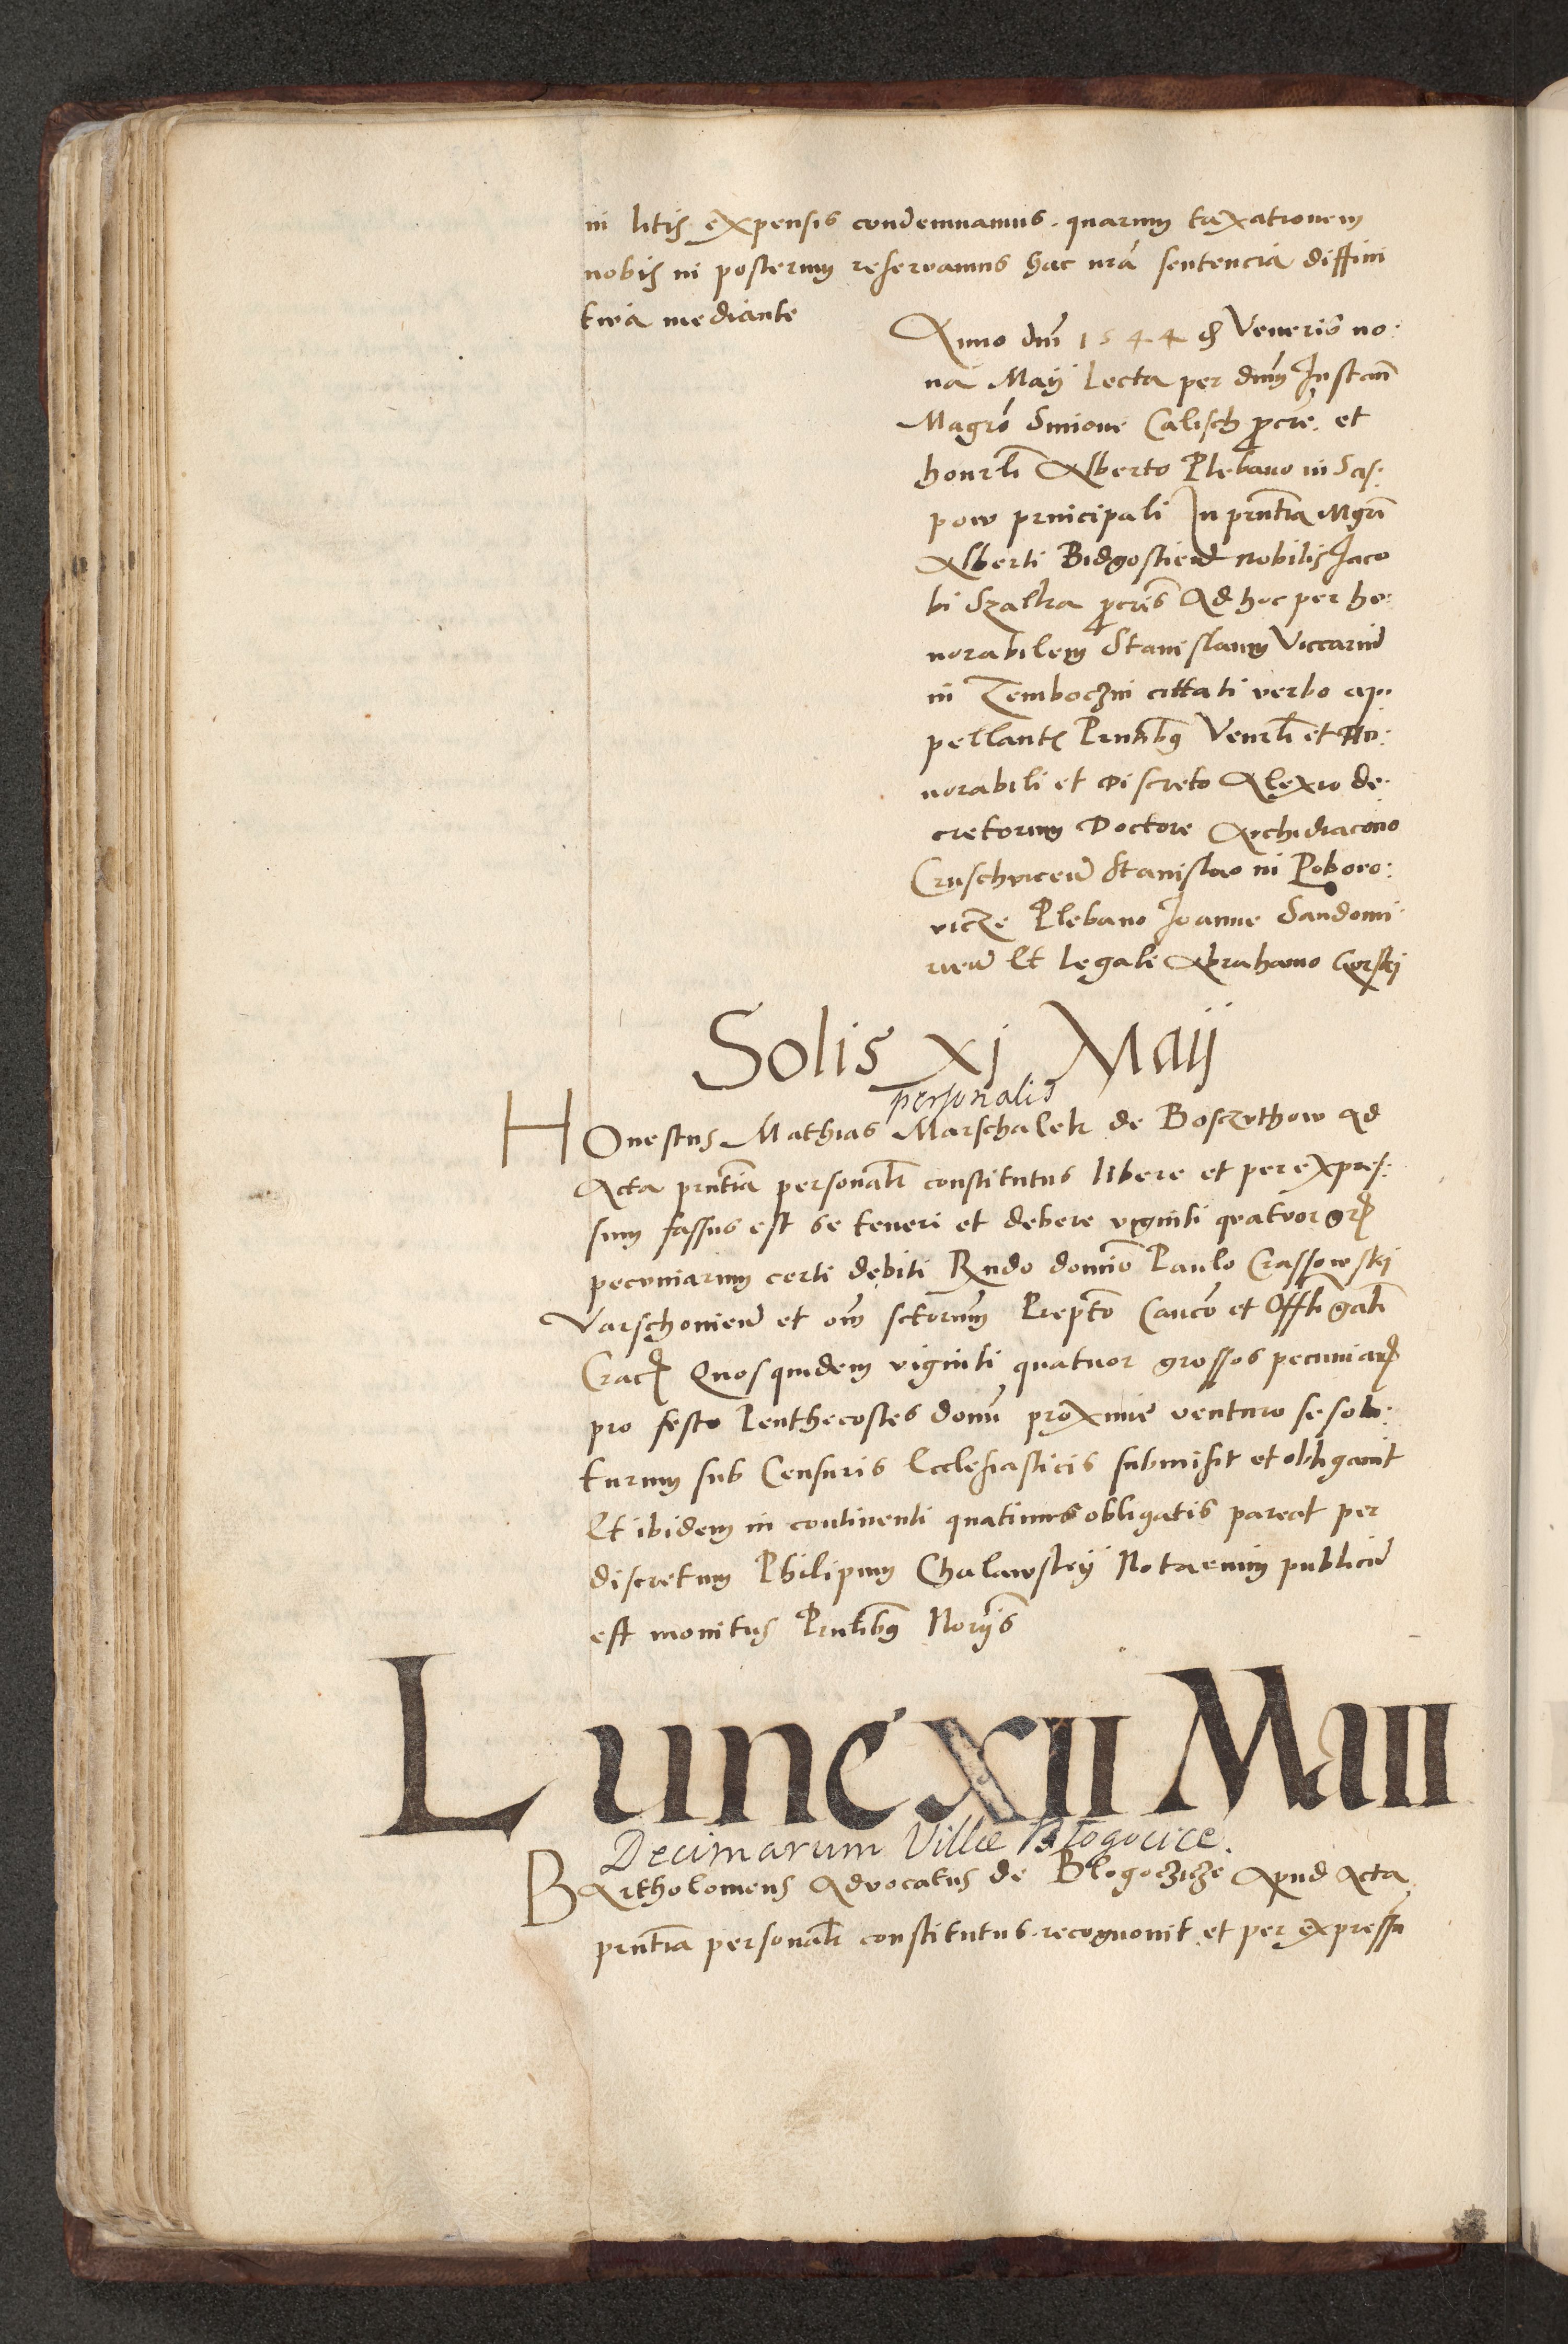 in litis expensis condemnamus. quarum taxationem
nobis in posterum reservamus hac nrā sentencia diffini
tiva mediante
Anno dnī 1544 Veneris no:
na Maij Lecta per dnm̄ Instan̄
Magrō Simone Calisch ꝓcre. et
honrlī Alberto Plebano in
pow principali In prn̄tia Mgrī
Alberti Bidgostien̄ nobilis Jaco
bi Szalka ꝓcris Ad hoc per ho:
norabilem Stanislaum Viccariū
in Zemboczin cittati verbo ap:
pellantꝭ Prn̄tibꝰ Venrlī et Ho:
norabili et Discreto Alexio de:
cretorum Doctore Archidiacono
Cruschvicen̄ Stanislao in Poboro:
vicze Plebano Joanne Sandomi:
rien̄ Et Legale Abrahamo Gorskij
Solis xj Maij
personalis
HOnestus Mathias Marschalek de Bosczythow ad
Acta prn̄tia personalr̄ constitutus libere et per expres:
sum fassus est se teneri et debere viginti quatvor grꝭ
pecuniarum certi debiti Rndo domīo Paulo Crassowskij
Varschovien̄ et om̄ sctorum̄ Prepto Cancō et Offlī gnlī
Cracꝭ Quos quidem viginti quatuor grossos pecuniarꝭ
pro festo Penthecostes domī proxime venturo se solu:
turum sub Censuris Ecclesiasticis submisit et obligavit
Et ibidem in continenti quatinus obligatis pareat per
discretum Philipum Chalawskij Notarium publicū
est monitus Prn̄tibꝰ Norijs
Lune XII Maii
Decimarum Villæ Błogocice.
BArtholomeus Advocatus de Blogoczicze Apud Acta
prn̄tia personalr̄ constitutus recognovit et per expressū